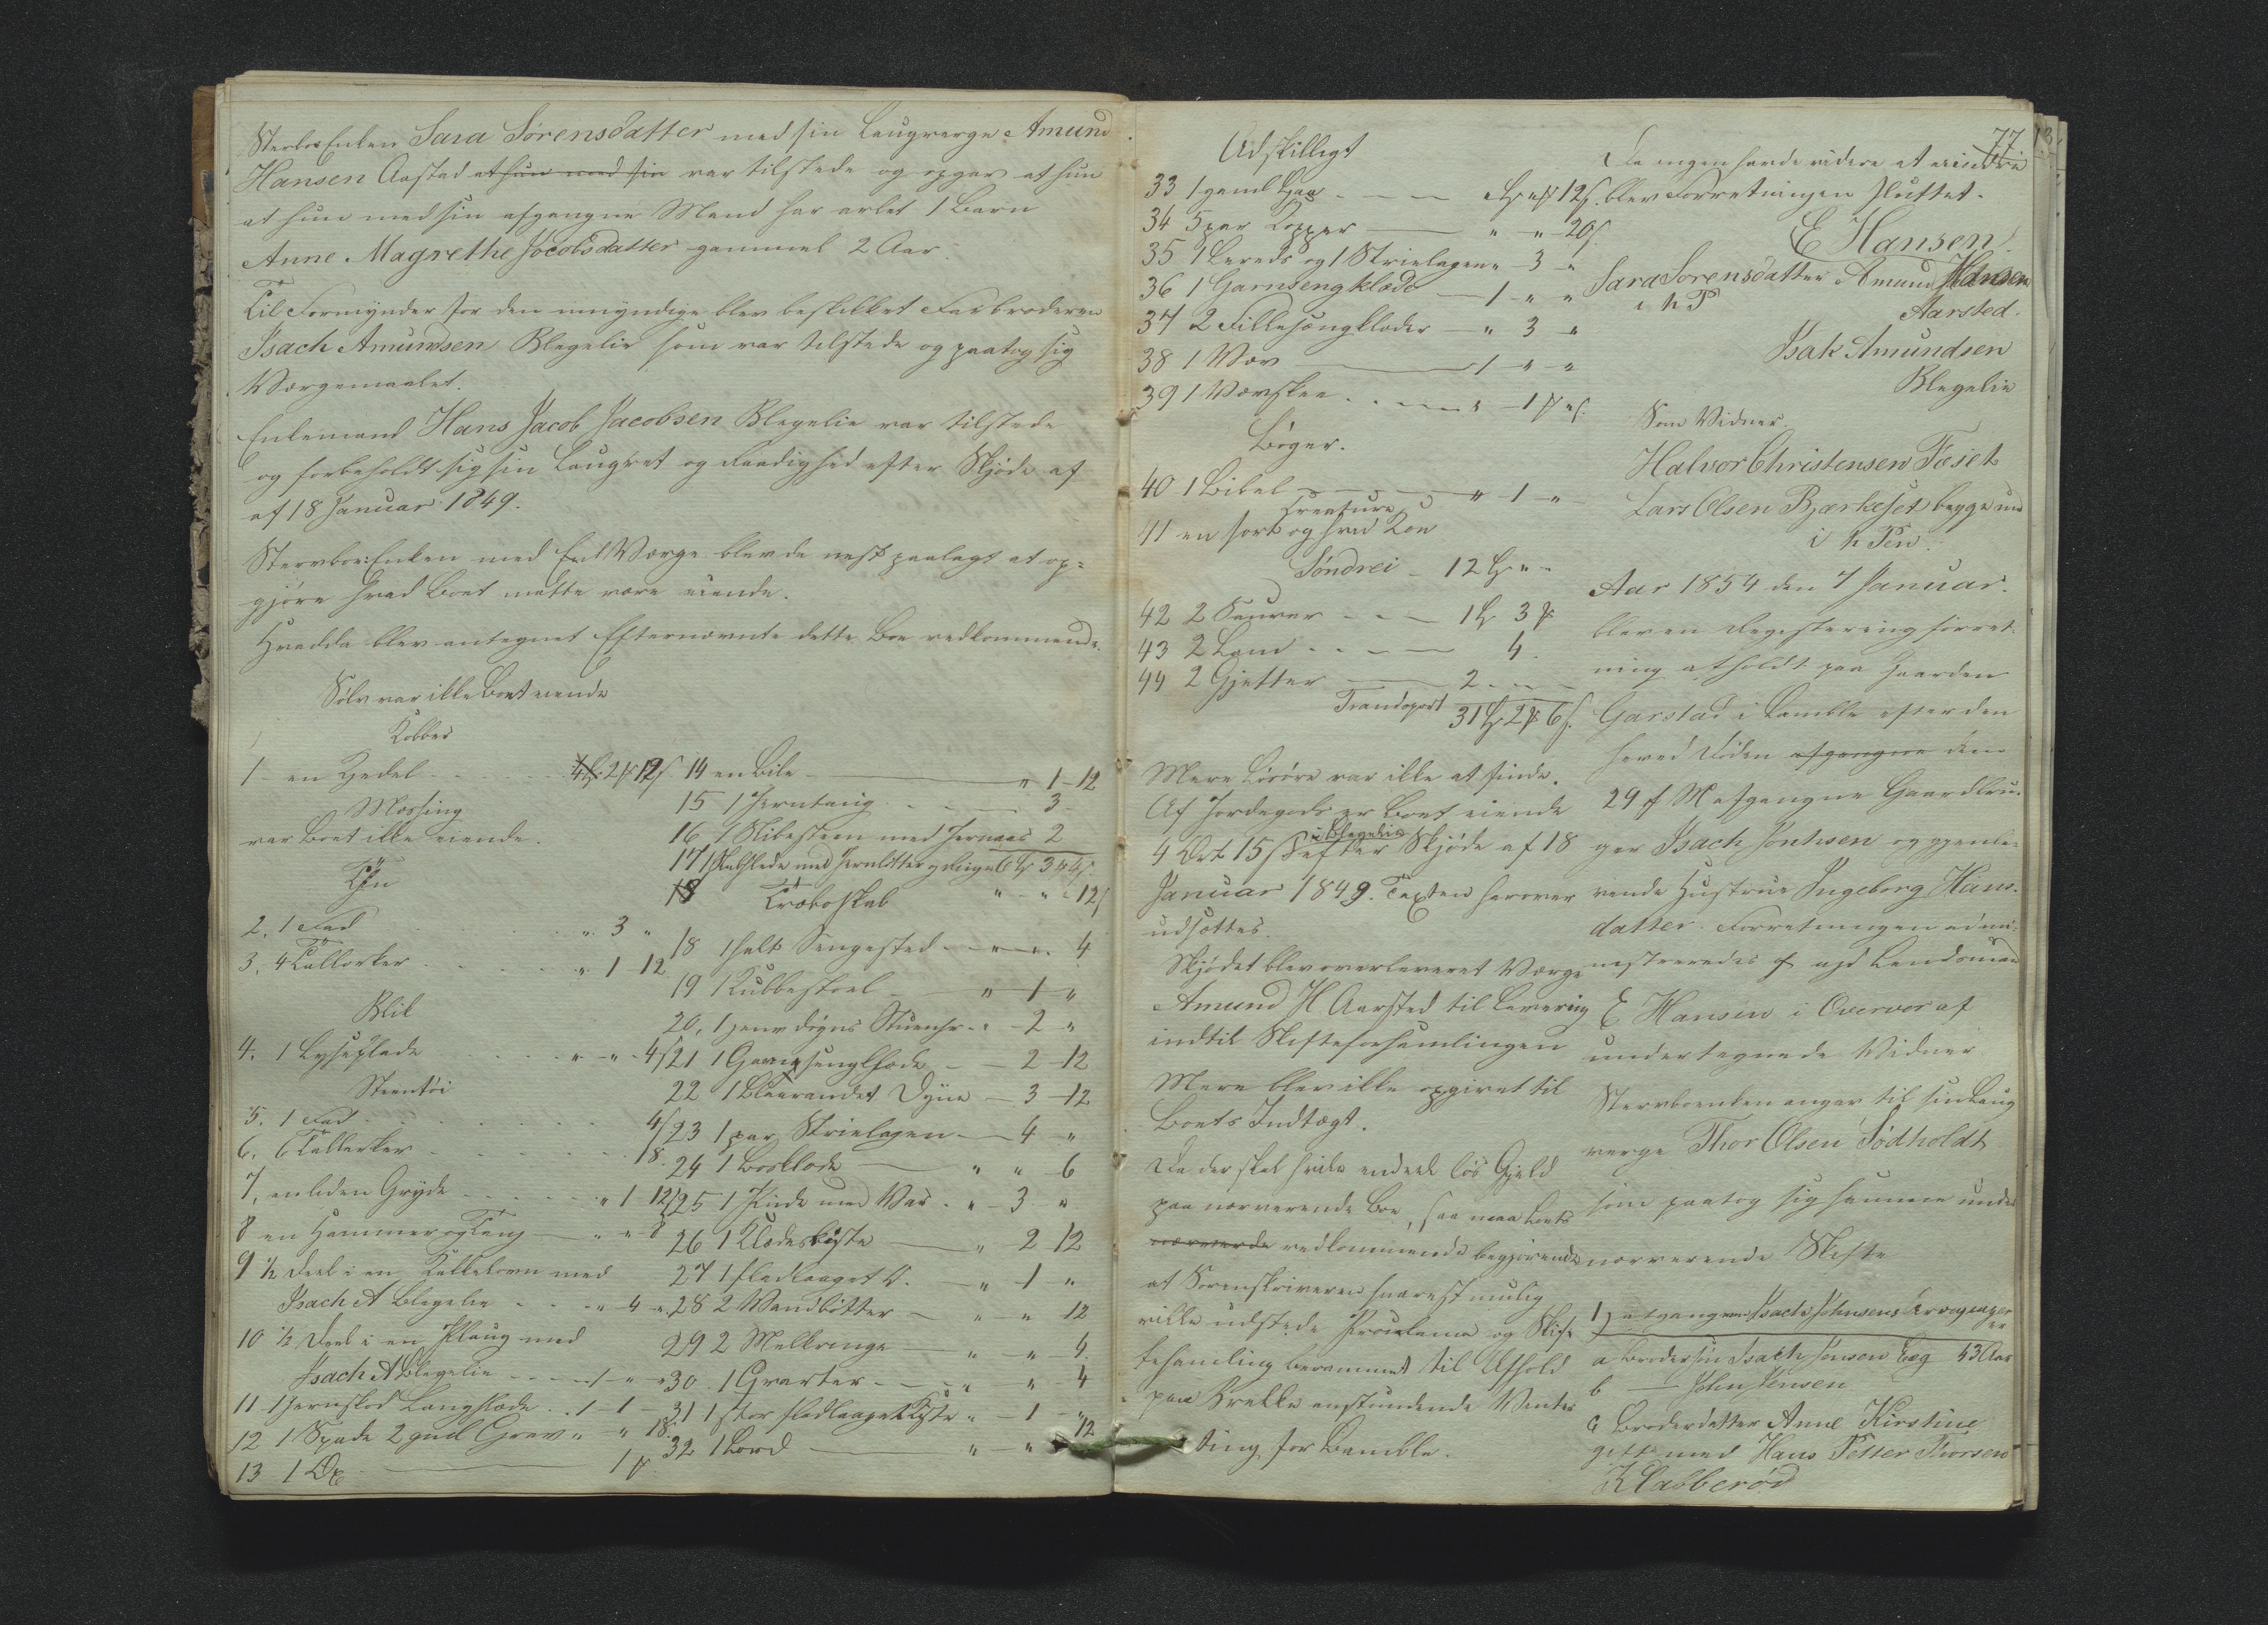 Sterbos Enken Sara Sørensdatter med sin Laugværge Amund
Hansen Aastad at hun med sin var tilstede og opgav at hun
at hun med sin afgangne Mand har avlet 1 Barn
Anne Magrethe Jocobsdatter gammel 2 Aar.
Til Formynder for den umyndige blev beskikket Farbroderen
Isach Amundsen Blegelie som var tilstede og paatog sig
Værgemaalet.
Enkemand Hans Jacob Jacobsen Blegelie var tilstede
og forbeholdt sig sin Laugret og Raadighed efter Skjøde af
af 18 Januar 1849.
Stervbo: Enken med Værge blev de nest paalagt at op-
gjøre hvad Boet matte være eiende.
Hvadda blev antegnet Efternævnte dette Boe vedkommende.
Sølv var ikke Boet eiende
Kobber
1 en Kedel 2 12
Messing
var Boet ikke eiende.
Tin
2. 1 Fad " 3 "
3. 4 Tallerker " 1 12
Blik
4. 1 Lyseplade " " 4
Steentøi
5. 1 Fad 4
6. 6 Tallerker 18.
7. en liden Gryde " 1 12
8 en Hammer og Tang " " 8
9 ½ Deel i en Kakkelovn med
Isach A Blegelie " 4 "
10 ½ Deel i en Plaug med
Isach A Blegelie 1 " "
11 1 Jernskod Langslæde 1 1
12 1 Spade 2 gml Grev " " 18.
13 1 Øx 1
14 en Bile " 1 12
15 1 Jerntang 3
16 1 Slibesteen med Jernaas 2
17 1
18 Træboskab " " 12
18 1 halv Sengested " " 4
19 1 Kubbestoel " 1 "
20. 1 døgns Stueuhr " 2 "
21 1 Garnsengklæde 2 12
22 1 Blaarandet Dyne 3 12
23 1 par Strielagen 4 "
24 1 Bordklæde " " 6
25 1 Pude med Var " 3 "
26 1 Klædeskiste " 2 12
27 1 fladlaaget D. " 1 "
28 2 Vandbøtter " " 12
29 2 Melkringe " " 4.
30 1 Qvarter " " 4
31 1 stor fladlaaget Kiste " 1 "
32 1 Bord " " 12
77
Udskilligt
33 1 gaml 12
34 5 par Kopper " " 20
35 1 Lereds og 1 Strielagen " 3 "
36 1 Garnsengklæde 1 " "
37 2 Fillesængklæder " 3 "
38 1 Væv 1 " "
39 1 Vævskee " 1
Bøger.
40 1 Bibel " 1 "
Creature
41 en sort og hvid Koe
Søndrei 12 " "
42 2 Sauver 1 3
43 2 Lam 4.
44 2 Gjetter 2
Transport 31 2 6
Mere Løsøre var ikke at finde.
Af Jordegods er Boet eiende
i Blegelie
4 Ort 15 efter Skjøde af 18
Januar 1849. Taxten herover
udsættes.
Skjødet blev overleveret Værge
Amund H Aarsted til Levering
indtil Skifteforsamlingen
Mere blev ikke opgivet til
Boets Indtægt.
Da der skal findes endeel løs Gjeld
paa nærværende Boe, saa maa Boets
nærverde vedkommende begjærende
at Sorenskriveren snarest mulig
ville udstede Proclama og Skifte
behandling berammet til Afhold
paa Brekke anstundende Vinter
ting for Bamble.
Da ingen havde videre at erindre
blev Forretningen sluttet.
E Hansen.
Sara Sorensdatter Amund Hansen
i h P Aarsted.
Isak Amundsen
Blegelie
Som Vidner.
Halvor Christensen Fæset
Lars Olsen Bjerkeset begge med
i h Pen.
Aar 1854 den 7 Januar.
blev en Registeringsforret-
ning afholdt paa Gaarden
Garstad i Bamble efter den
herved Døden afgangne den
29 f M afgangne Gaardbru-
ger Isach Jontsen og gjenle-
vende Hustrue Ingeborg Hans-
datter. Forretningen admi-
nistreredes af Lendsmand
E Hansen i Overvær af
undertegnede Vidner
Stervboenken angav til sin Laug
værge Thor Olsen Sødholdt
som paatog sig samme under
nærværende Skifte
1) afgangne Isach Johnsens Arvinger
er
a Brodersøn Isach Jensen Eeg 43 Aar
b — John Jensen
c Broderdatter Anne Kirstine
gift med Hans Petter Thorsen
Klabberød